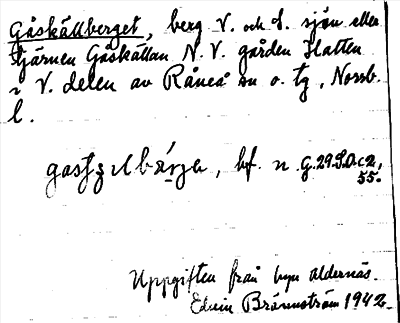 Gåskällberget, berg V. och S. sjön eller
tjärnen Gåskällan N. V. gården Flatten
i V. delen av Råneå sn o. tg, Norrb.
l.
bf. n. G.29.S.O.c2,
55.
Uppgiften från byn Aldernäs.
Edvin Brännström 1942.